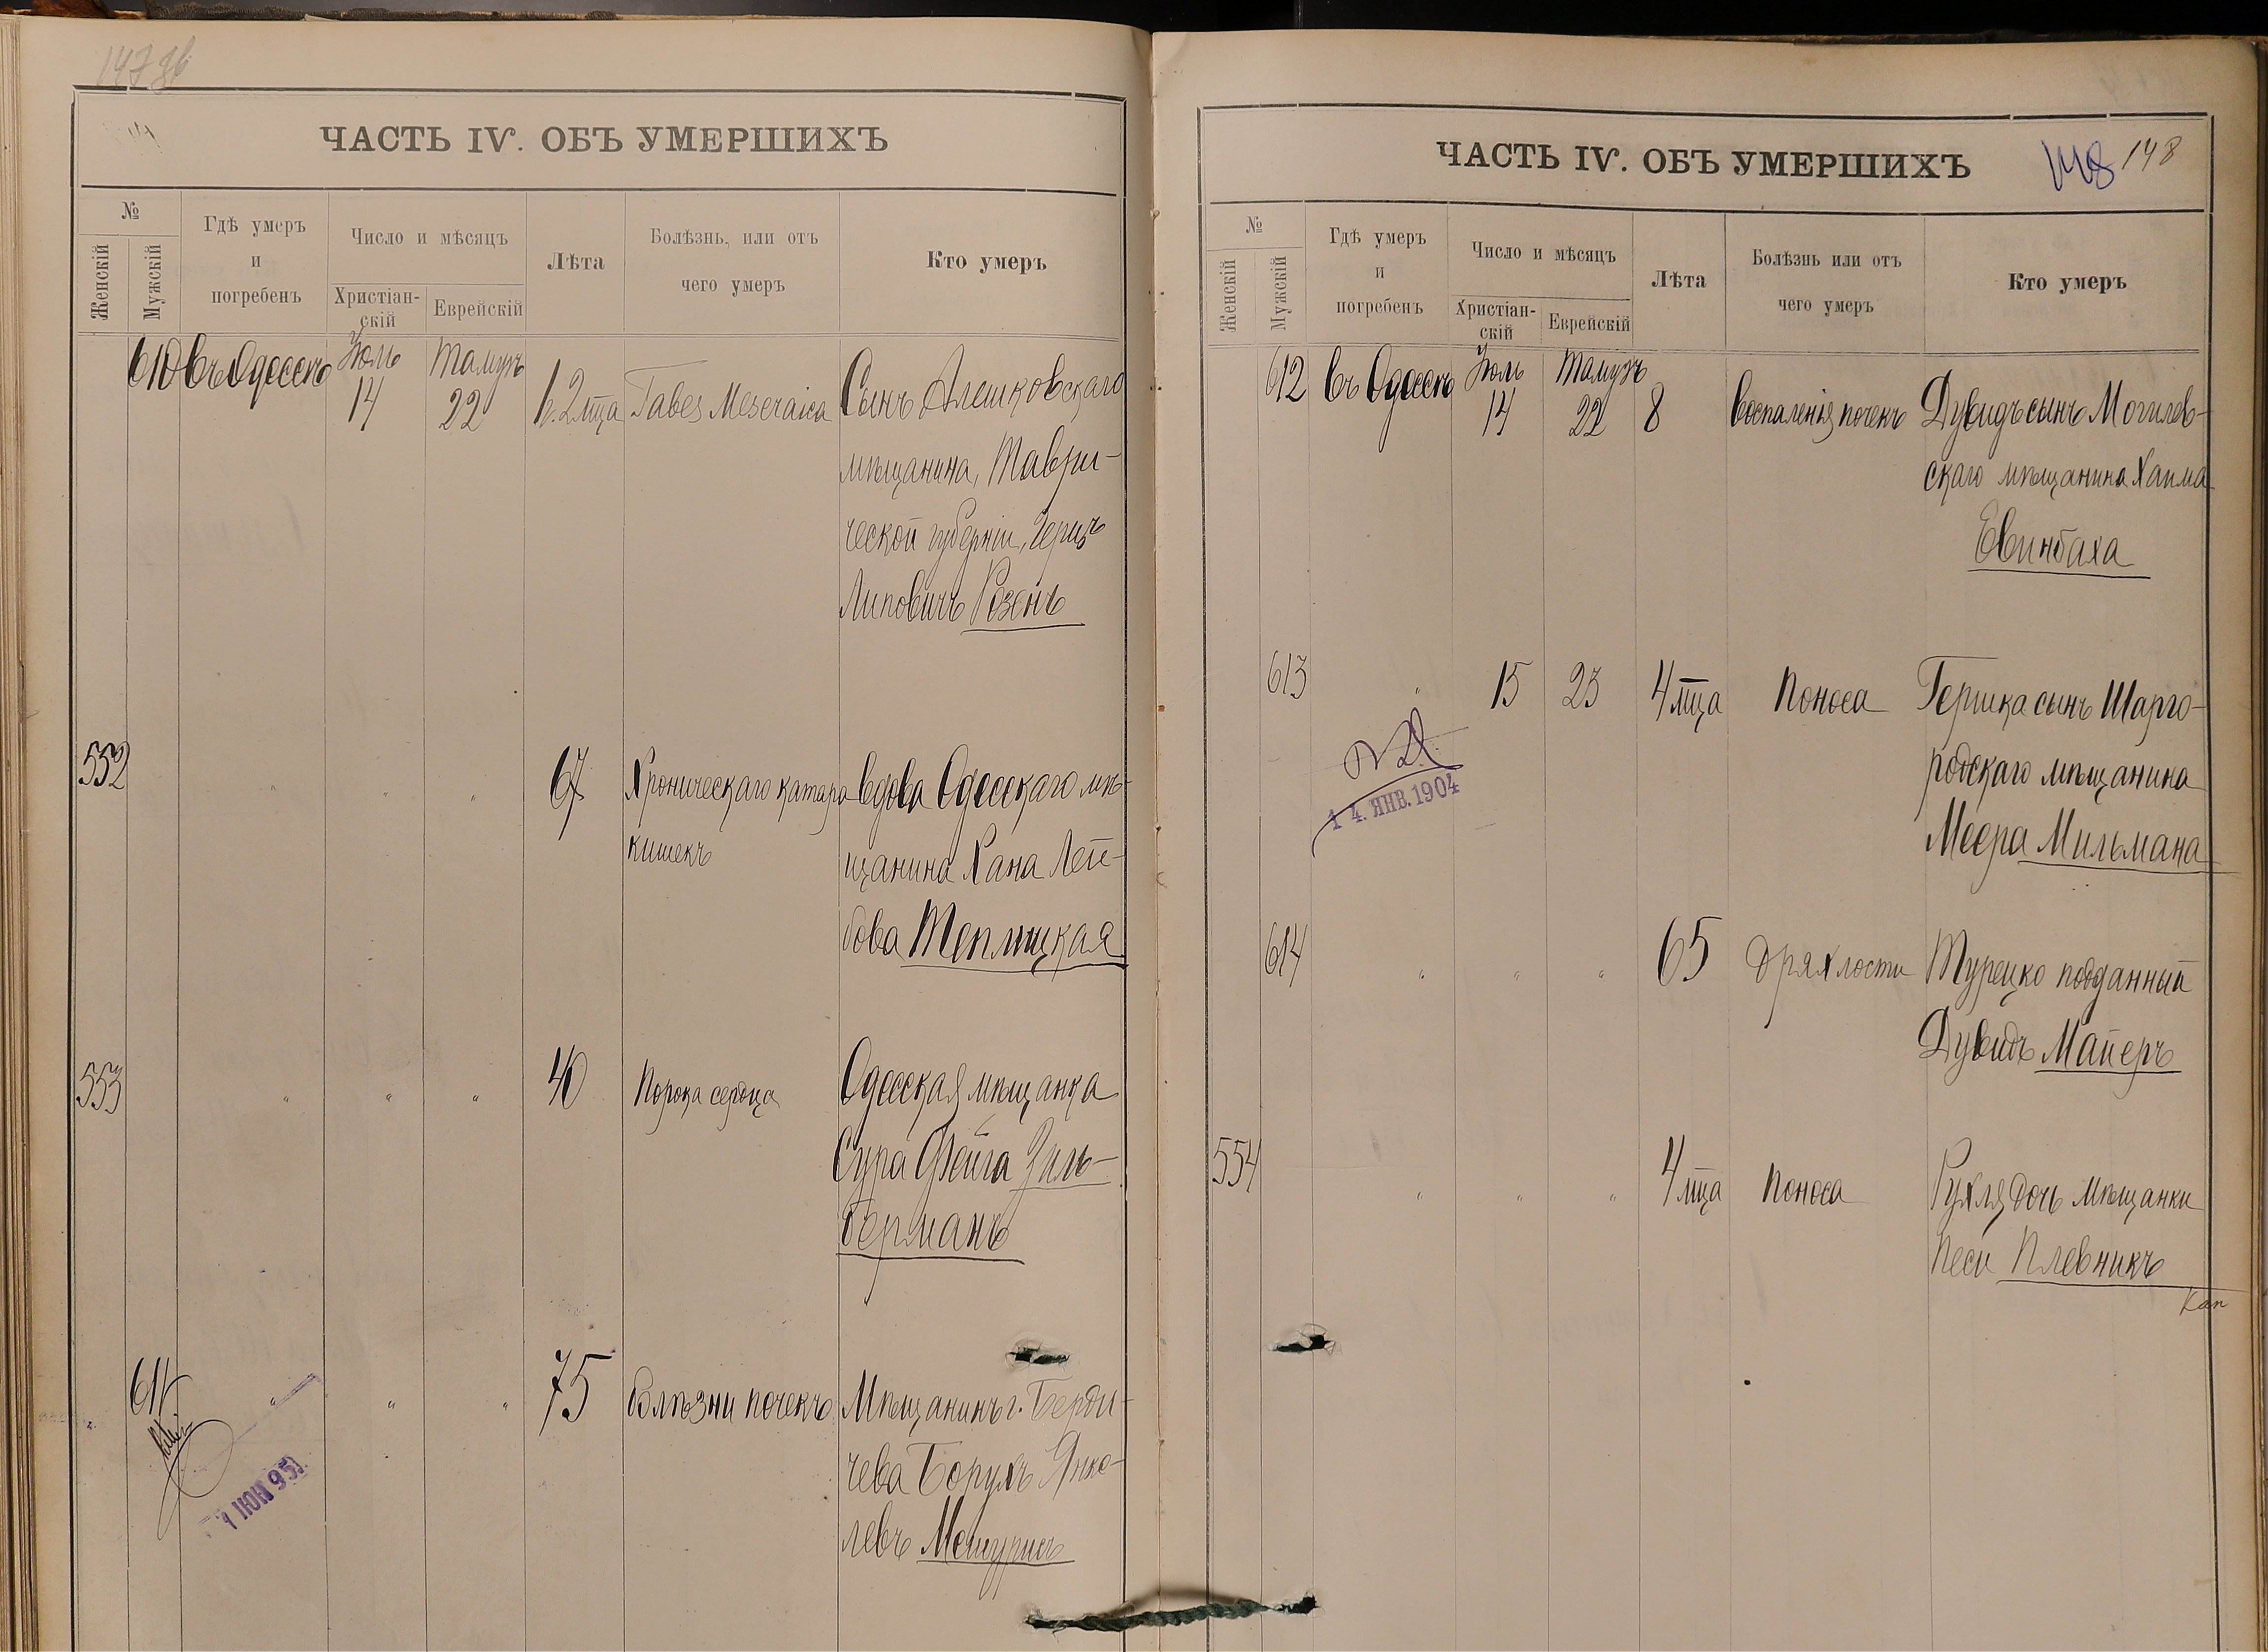 147 об
ЧАСТЬ IV. ОБЪ УМЕРШИХЪ
№
Женскій
Мужскій
Гдѣ умеръ
и
погребенъ
Число и мѣсяцъ
Христіан-
скій
Еврейскій
Лѣта
Болѣзнь, или отъ
чего умеръ
Кто умеръ
610 въ Одессѣ Іюль 14 Тамузъ 22 2 мца Tabes Meseraica Сынъ Алешковскаго
мѣщанина, Таври-
ческой губерніи, Герцъ
Липовичъ Розенъ
552 " " " 67 Хроническаго катара вдова Одесскаго мѣ-
кишекъ щанина Хана Лей-
бова Теплицкая
553 " " " 40 Порока сердца Одесская мѣщанка
Сура Фейга Зиль-
берманъ
611 " " " 75 болѣзни почекъ Мѣщанинъ г. Берди-
чева Борухъ Янке-
левъ
ЧАСТЬ IV. ОБЪ УМЕРШИХЪ
148 148
№
Женскій
Мужскій
Гдѣ умеръ
и
погребенъ
Число и мѣсяцъ
Христіан-
скій
Еврейскій
Лѣта
Болѣзнь или отъ
чего умеръ
Кто умеръ
612 въ Одессѣ Іюль 14 Тамузъ 22 8 Воспаленія почекъ Дувидъ сынъ Могилев-
скаго мѣщанина Хаима
Евинбаха
613 " 15 23 4 мца Поноса Гершка сынъ Шарго-
родскаго мѣщанина
Меера Мильмана
1 4. ЯНВ. 1904
614 " " " 65 Дряхлости Турецко подданный
Дувидъ Майеръ
554 " " " 4 мца Поноса Рухля дочь мѣщанки
Песи Плевникъ